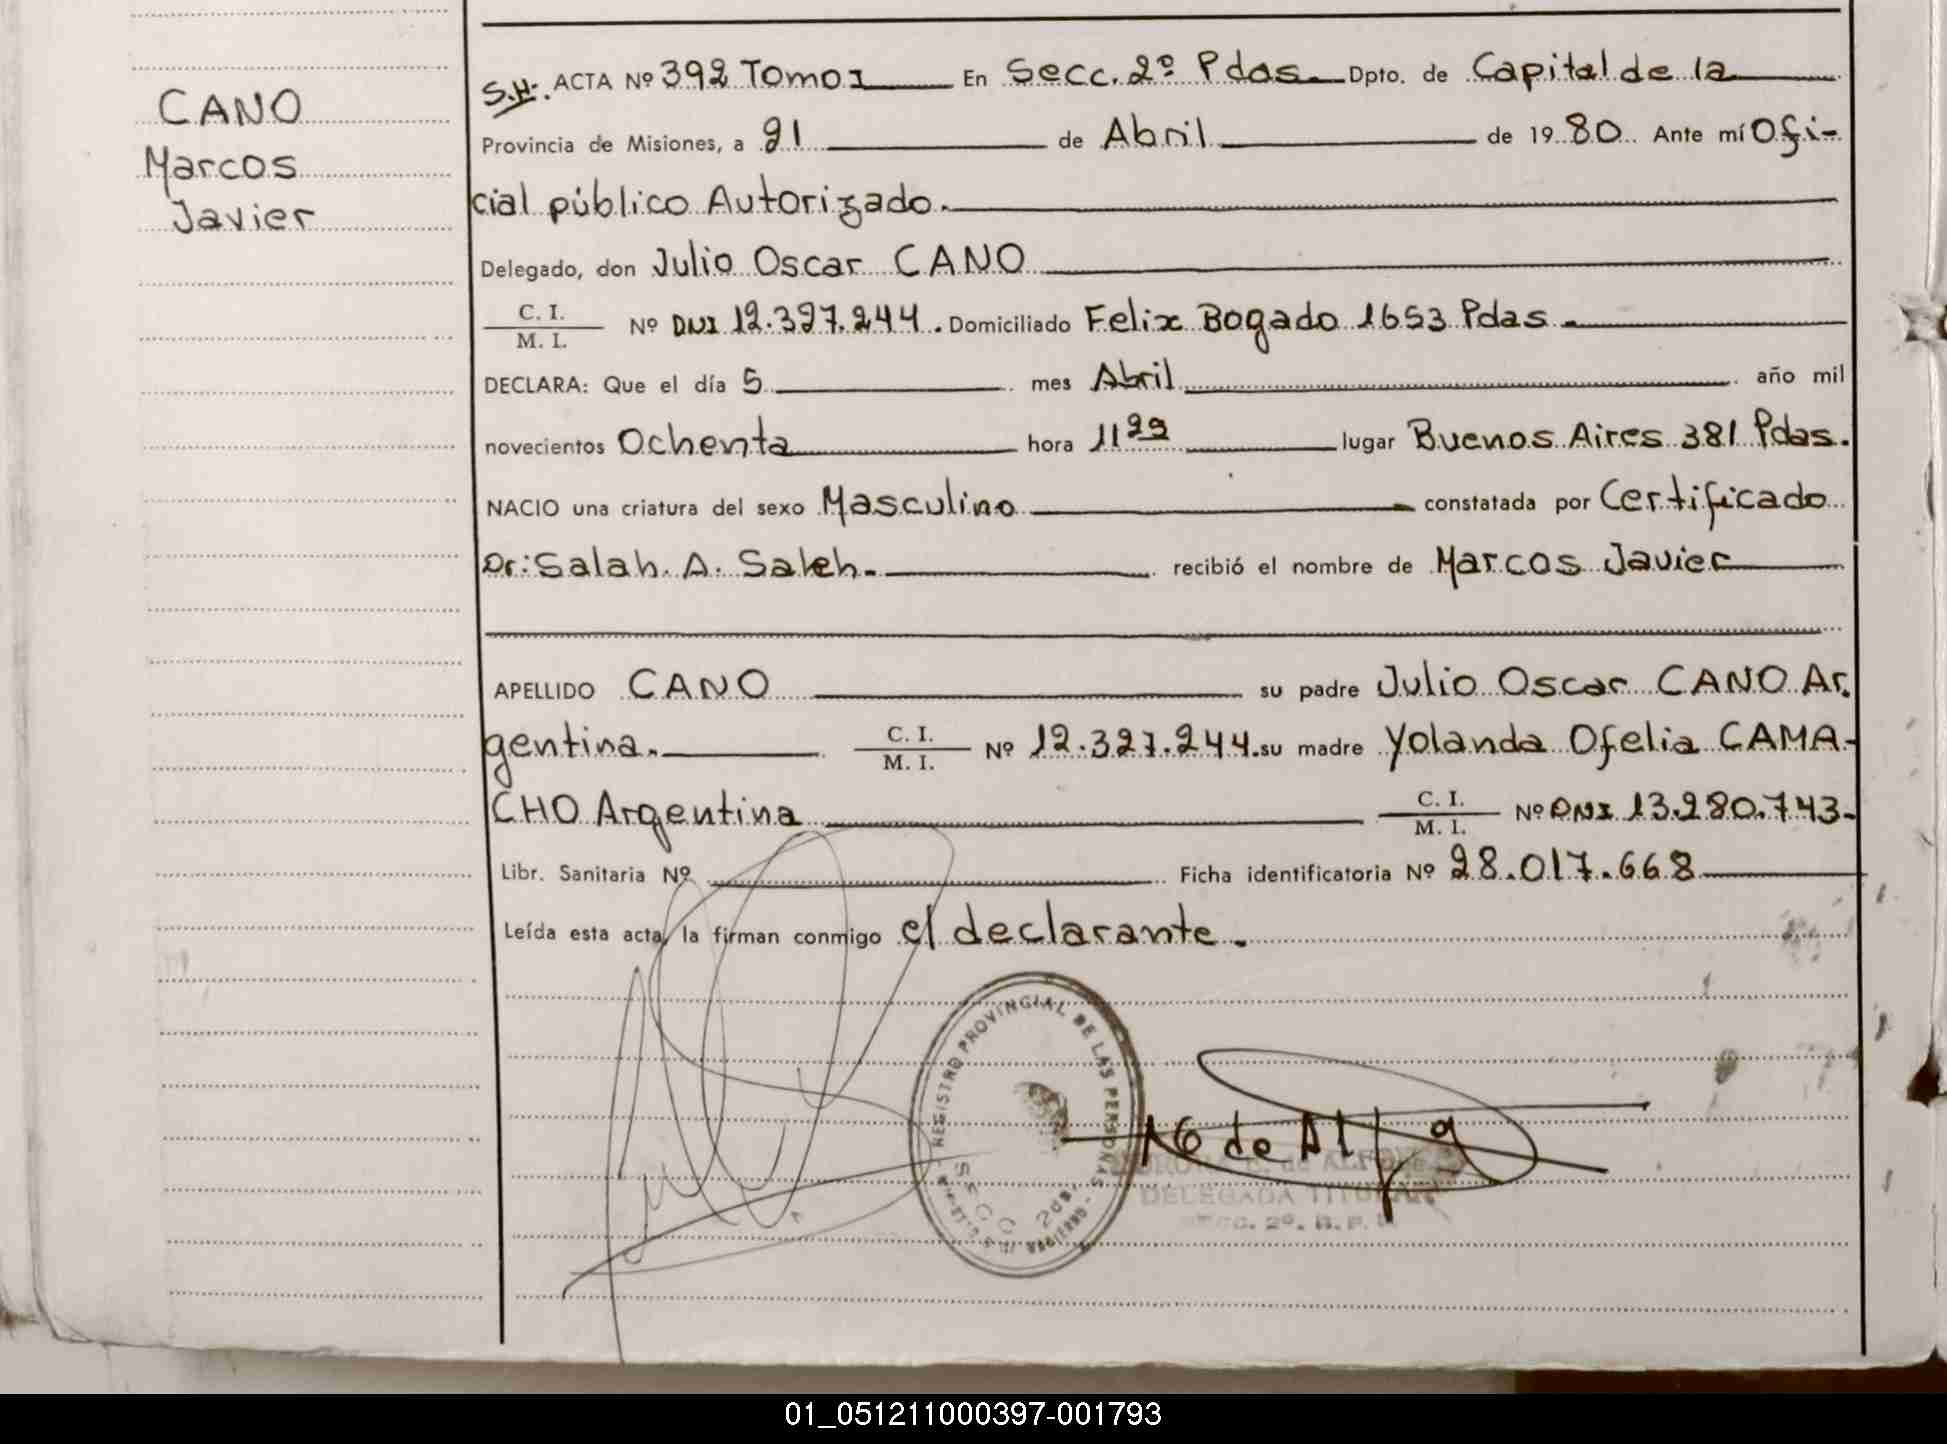 CANO
Marcos
Javier
S.H. ACTA Nº 392 Tomo I En Secc. 2º Pdas. Dpto. de Capital de la
Provincia de Misiones, a 21 de Abril de 1980. Ante mí Ofi-
cial público Autorizado.
Delegado, don Julio Oscar CANO
C. I.
M. I. Nº DNI 12.327.244. Domiciliado Felix Bogado 1653 Pdas.
DECLARA: Que el día 5 mes Abril año mil
novecientos Ochenta hora 11 lugar Buenos Aires 381 Pdas.
NACIO una criatura del sexo Masculino constatada por Certificado
Dr: Salah. A. Saleh. recibió el nombre de Marcos Javier
APELLIDO CANO su padre Julio Oscar CANO Ar.
gentina. C. I.
M. I. Nº 12.327.244. su madre Yolanda Ofelia CAMA-
CHO Argentina C. I.
M. I. Nº DNI 13.280.743-
Libr. Sanitaria Nº Ficha identificatoria Nº 28.017.668
Leída esta acta, la firman conmigo el declarante.
REGISTRO PROVINCIAL DE LAS PERSONAS
SECC 2da.
de Alf
de ALF
DELEGADA TITULAR
SECC. 2º. R. P.
01_051211000397-001793